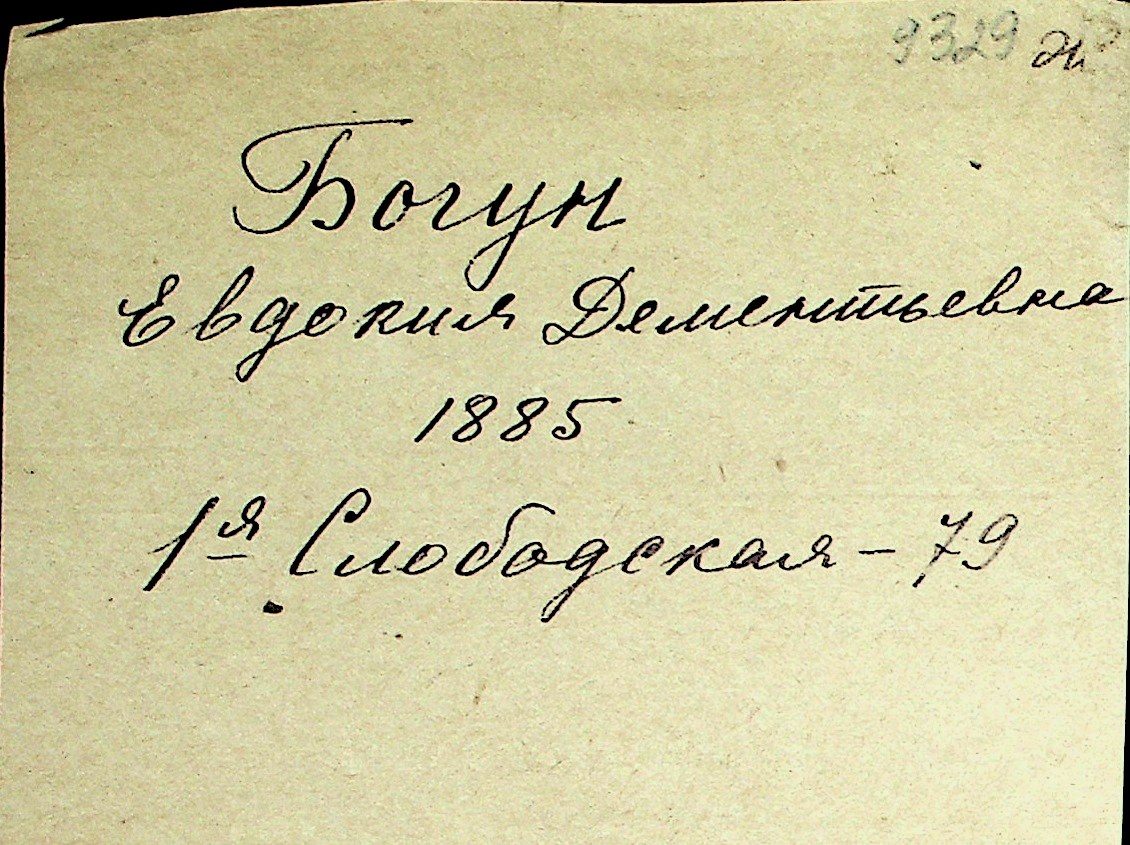 9329
Богун
Евдокия Дементьевна
1885
1я Слободская - 79